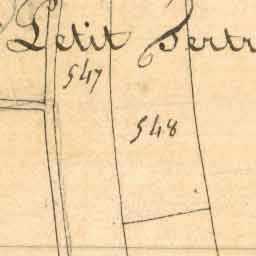 Petit Tertr
547
548